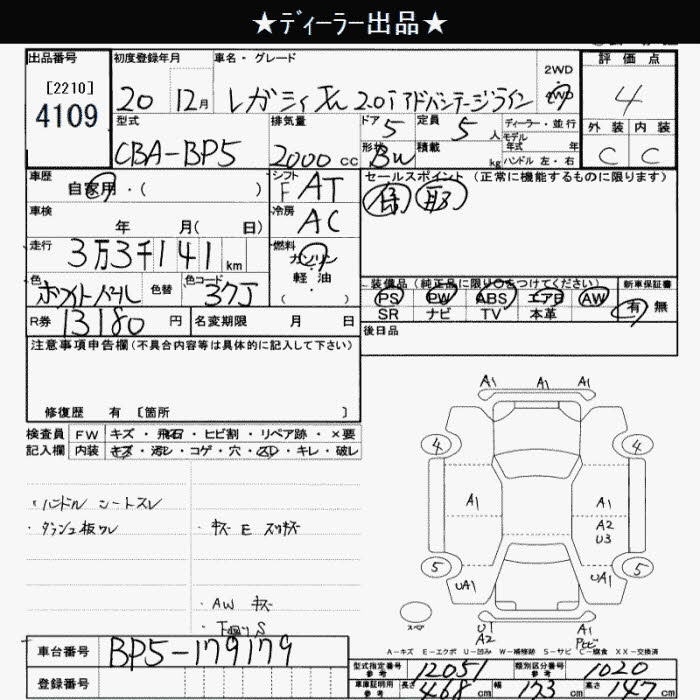 ★ディーラー出品★
出品番号
[2210]
4109
初度登録年月
20 12月
車名・グレード
レガシィ 2.0i アドバンテージライン
2WD
4WD
評価点
4
外装 内装
C C
型式
CBA-BP5
排気量
2000 cc
ドア 5
定員 5 人
形状 BW
積載 kg
ディーラー・並行
モデル
年式 年
ハンドル 左・右
車歴
自家用・( )
シフト
F AT
車検
年 月( 日)
冷房
AC
走行
3万3千141 km
燃料
ガソリン
軽油
( ・ )
色
ホワイトパール
色替
色コード
37J
R券 13180 円
名変期限 月 日
セールスポイント(正常に機能するものに限ります)
保 取
装備品(純正品に限り○をつけてください)
PS PW ABS エアB AW
SR ナビ TV 本革
新車保証書
有 無
後日品
注意事項申告欄(不具合内容等は具体的に記入して下さい)
修復歴 有 [箇所 ]
検査員 FW キズ・飛石・ヒビ割・リペア跡・×要
記入欄 内装 キズ・汚シ・コゲ・穴・スレ・キレ・破レ
・ハンドル シートスレ
・ダッシュ板ワレ
・キズ E スリキズ
・AW キズ
・下廻りS
A1 A1 A1
4 4
A1 A1
A2
U3
5 5
UA1 UA1
U1
A2
A1
A-キズ E-エクボ U-凹み W-補修跡 S-サビ C-腐食 XX-交換済
車台番号 BP5-179179
登録番号
型式指定番号
参考
12051
類別区分番号
参考
1020
車庫証明用
参考
長さ 468 cm
幅 173 cm
高さ 147 cm